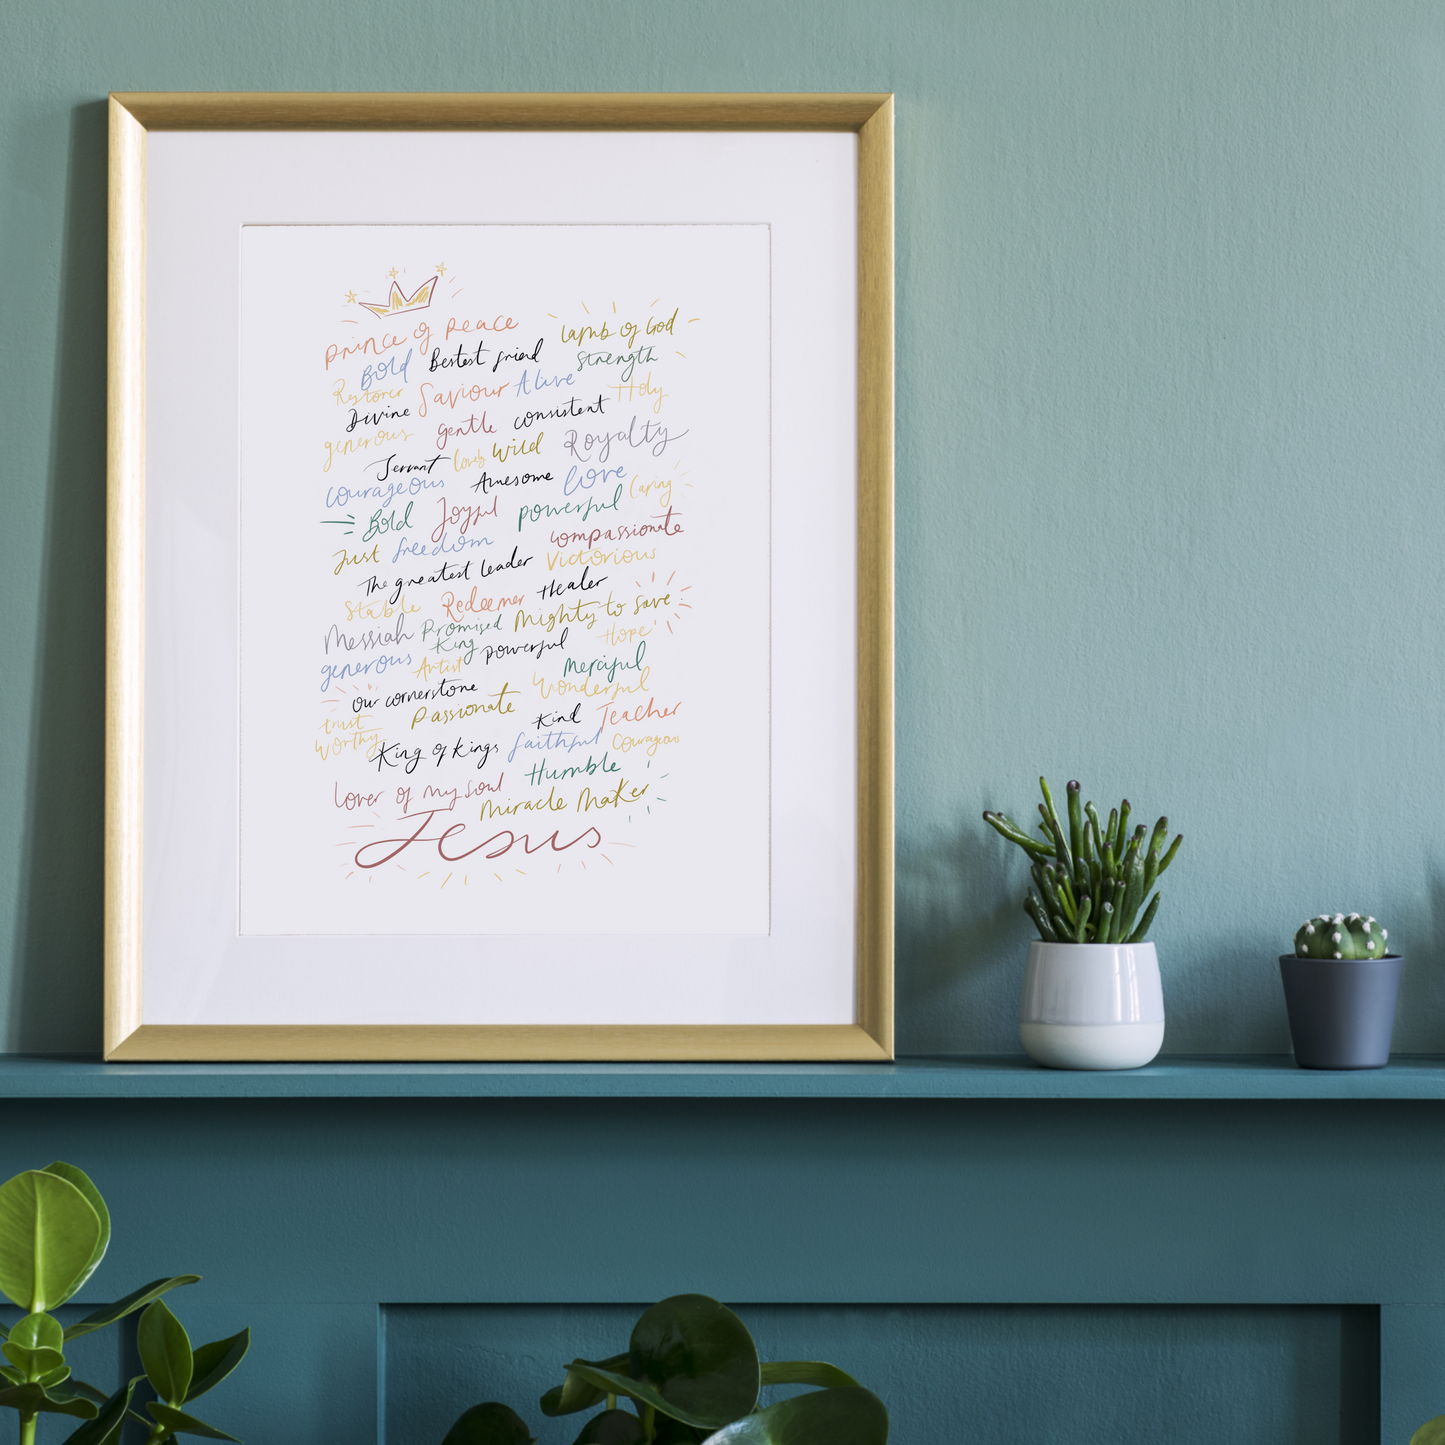 prince of peace Lamb of God
Bold Bestest friend Strength
Restorer Saviour Alive Holy
Divine gentle consistent
generous Wild Royalty
Servant lovely
courageous Awesome love Caring
Bold Joyful powerful
Just freedom compassionate
The greatest leader Victorious
Stable Redeemer Healer
Messiah Promised King Mighty to save
generous Artist powerful Hope
our cornerstone Merciful
trust worthy Passionate Wonderful
Kind Teacher
King of kings faithful Courageous
lover of my soul Humble
Miracle Maker
Jesus